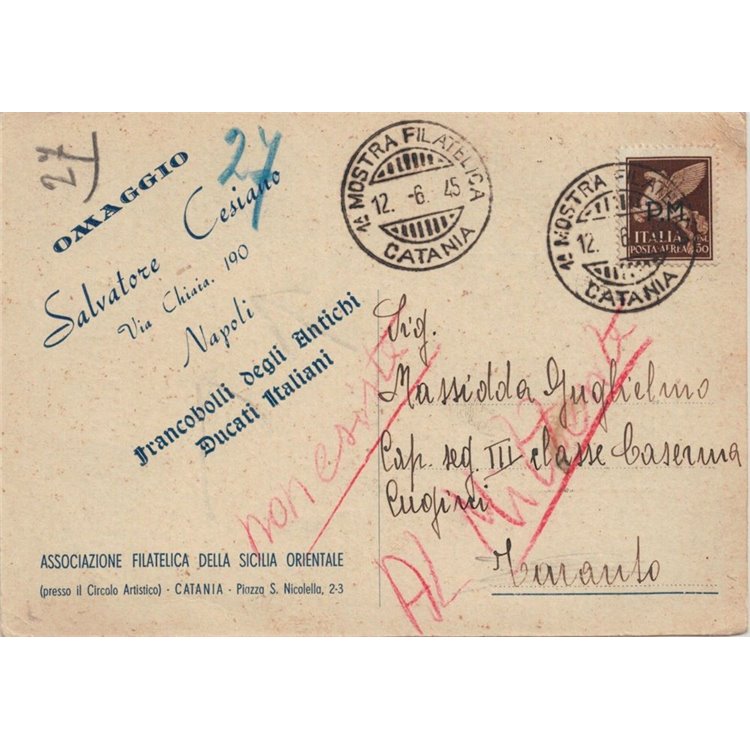 27
27
OMAGGIO
Salvatore Cesiano
Via Chiaia, 190
Napoli
Francobolli degli Antichi
Ducati Italiani
1a MOSTRA FILATELICA
12. -6. 45
CATANIA
1a MOSTRA FILATEL
12. 6
CATANIA
P.M.
ITALIA
POSTA-AEREA
50
Sig.
Massidda Guglielmo
Cap. seg. III classe Caserma
Cugini
Taranto
non esiste
AL Mittente
ASSOCIAZIONE FILATELICA DELLA SICILIA ORIENTALE
(presso il Circolo Artistico) - CATANIA - Piazza S. Nicolella, 2-3